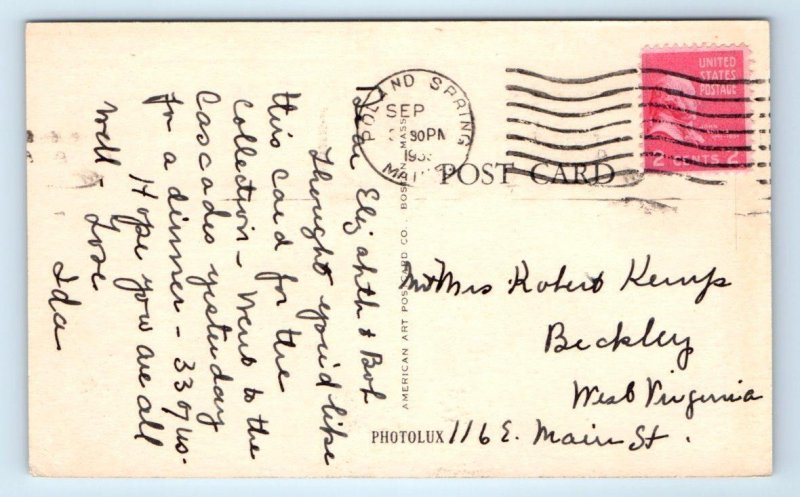 Dear Elizabth & Bob
Thought you'd like
this card for the
collection - Went to the
Cascades yesterday
for a dinner - 330 of us.
Hope you are all
well - Love
Ida
AMERICAN ART POSTCARD CO., BOSTON, MASS.
POLAND SPRING
SEP
30PM
MAINE
UNITED
STATES
POSTAGE
2 CENTS 2
POST CARD
Mr Mrs Robert Kemp
Beckley
West Virginia
116 E. Main St.
PHOTOLUX